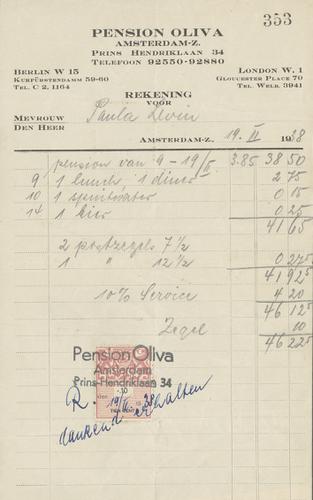 353
PENSION OLIVA
AMSTERDAM-Z.
PRINS HENDRIKLAAN 34
TELEFOON 92550-92880
BERLIN W 15
KURFÜRSTENDAMM 59-60
TEL. C 2, 1164
LONDON W. 1
GLOUCESTER PLACE 70
TEL. WELB. 3941
REKENING
VOOR
MEVROUW
DEN HEER
Paula Levin
AMSTERDAM-Z. 19. II 1938
pension van 9 - 19/II 3.85 38 50
9 1 lunch, 1 diner 2 75
10 1 spuitwater 0 15
14 1 bier 0 25
41 65
2 postzegels 7½
1 " 12½ 0 275
41 925
10% Service 4 20
46 125
Zegel 10
46 225
Pension Oliva
Amsterdam
Prins-Hendriklaan 34
R. 19/II. 38
dankend erhalten